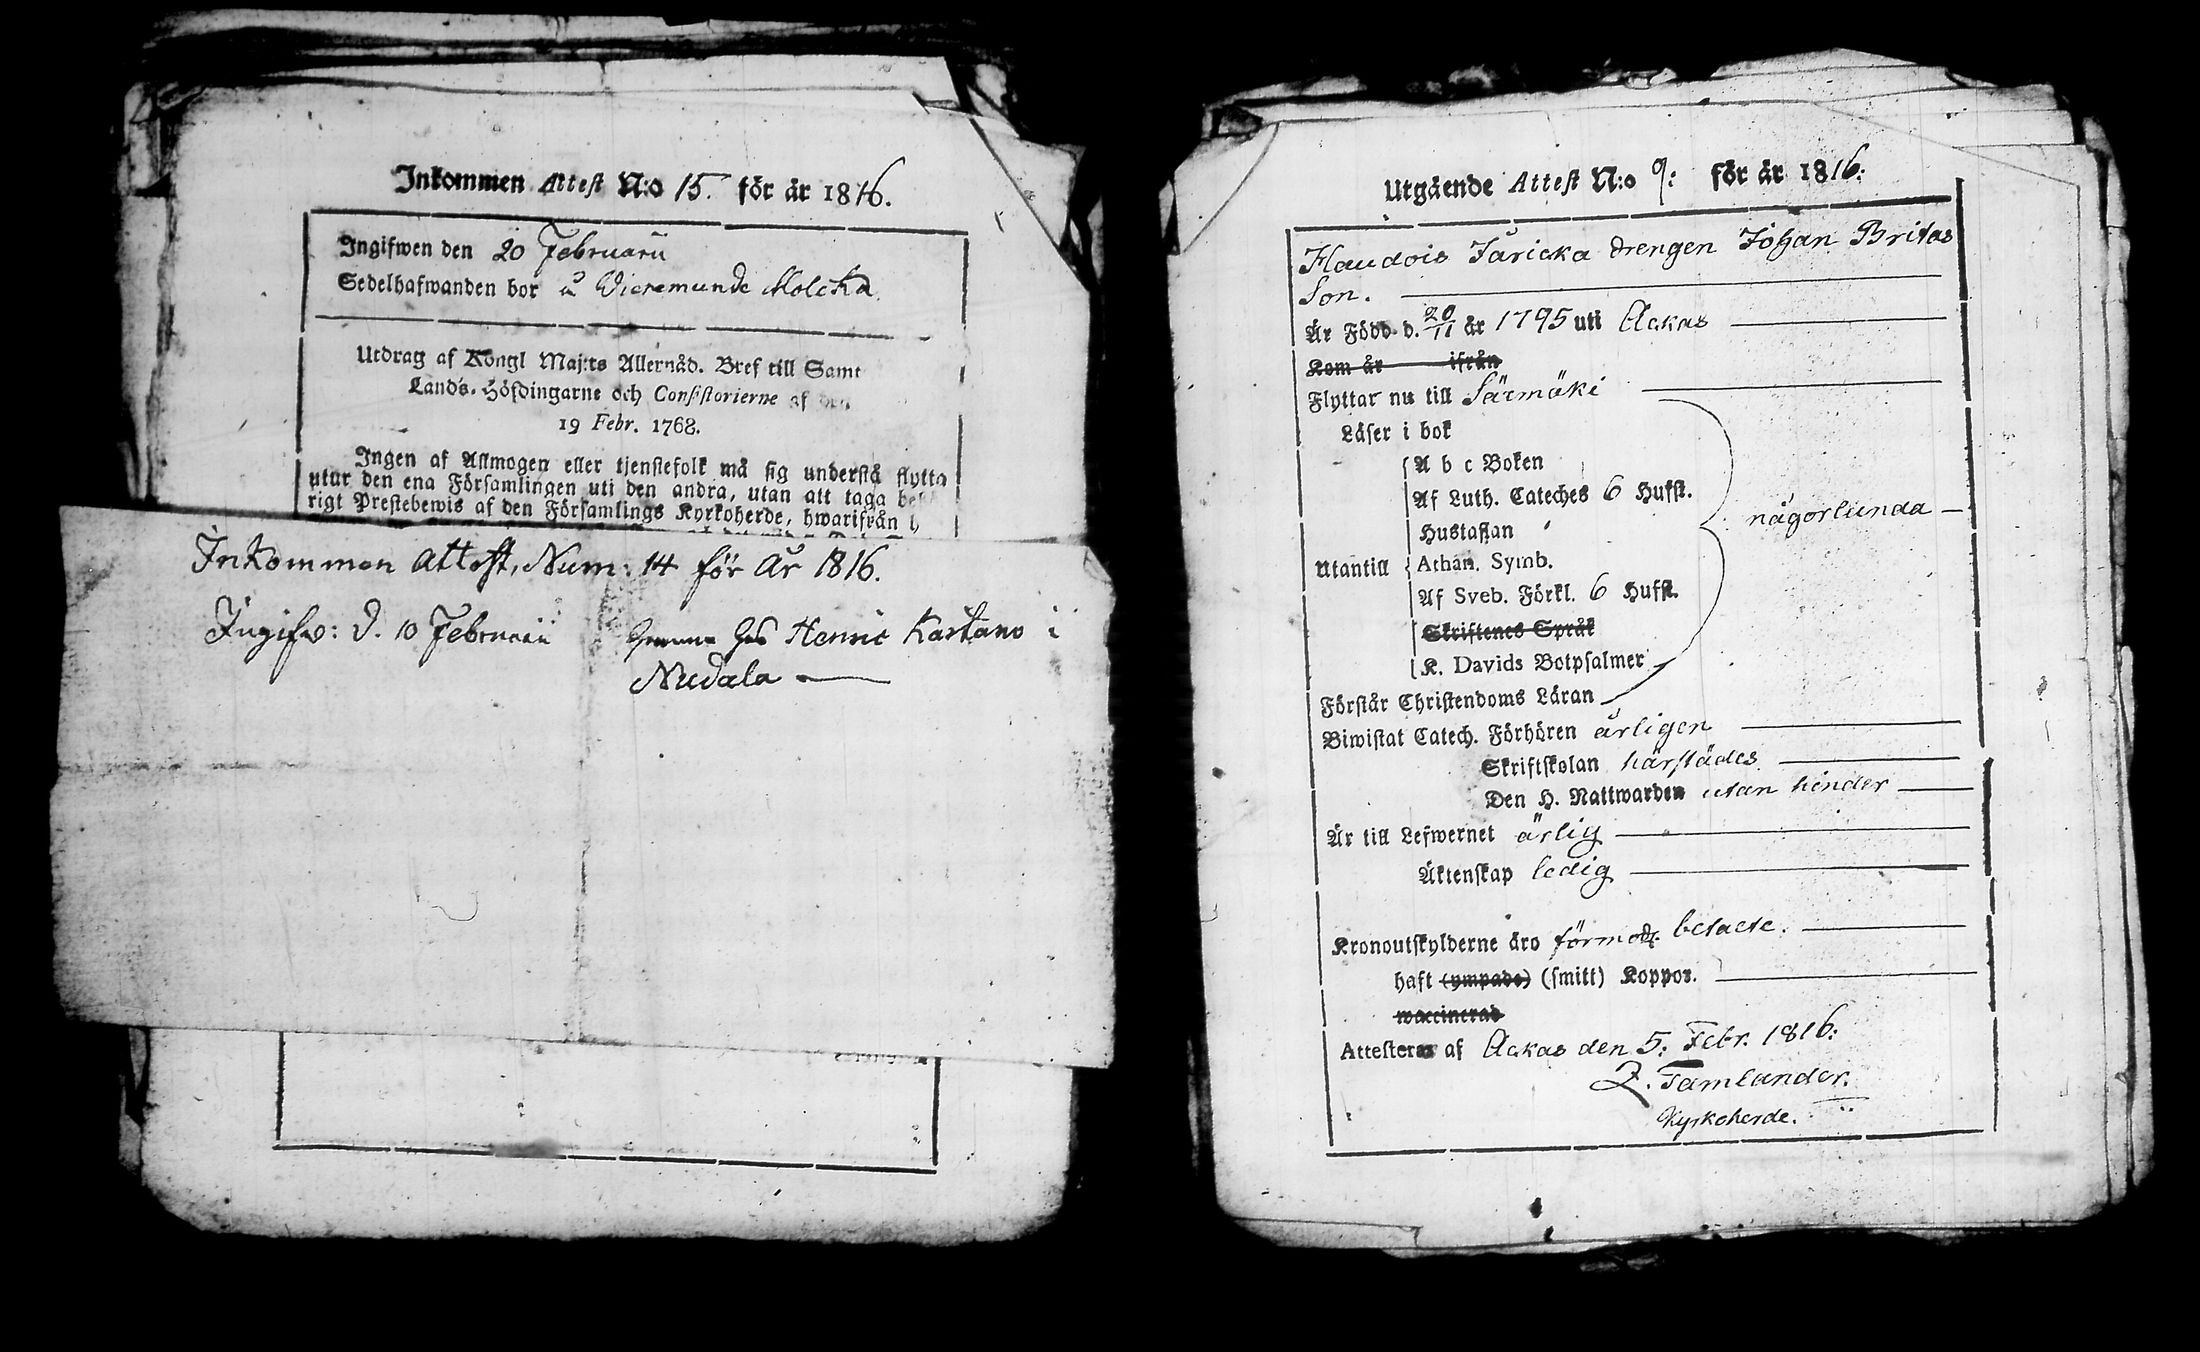 Inkommen Attest N:o 15. för år 1816.
Ingifwen den 20 Februarii
Sedelhafwanden bor å Wieremunde Molcka
Utdrag af Kongl Maj:ts Allernåd. Bref till Samt
Lands-Höfdingarne och Consistorierne af den
19 Febr. 1768.
Ingen af Allmogen eller tjenstefolk må sig understå flytta
utur den ena Församlingen uti den andra, utan att taga
rigt Prestebewis af den Församlings Kyrkoherde, hwarifrån h
Inkommen Attest, Num: 14 för År 1816.
Ingifw: d. 10 Februarii hos Henric Kartano i
Nudala
Utgående Attest N:o 9: för år 1816:
Flaudois Jaricka drengen Johan Britas
Son.
Är Född d. 20/11 år 1795 uti Ackas
Kom år ifrån
Flyttar nu till Särmäki
Läser i bok
A b c Boken
Af Luth. Cateches 6 Hufst.
Hustaflan
någorlunda
Utantill Athan. Symb.
Af Sveb. Förkl. 6 Hufst.
Skriftenes Språk
K. Davids Botpsalmer
Förstår Christendoms Läran
Biwistat Catech. Förhören årligen
Skriftskolan härstädes
Den H. Nattwarden utan hinder
Är till Lefwernet ärlig
Äktenskap ledig
Kronoutskylderne äro förmod. betalte.
haft (ympade) (smitt) Koppor.
waccinerad
Attesterar af Ackas den 5: Febr. 1816:
Z. Tamlander.
Kyrkoherde.